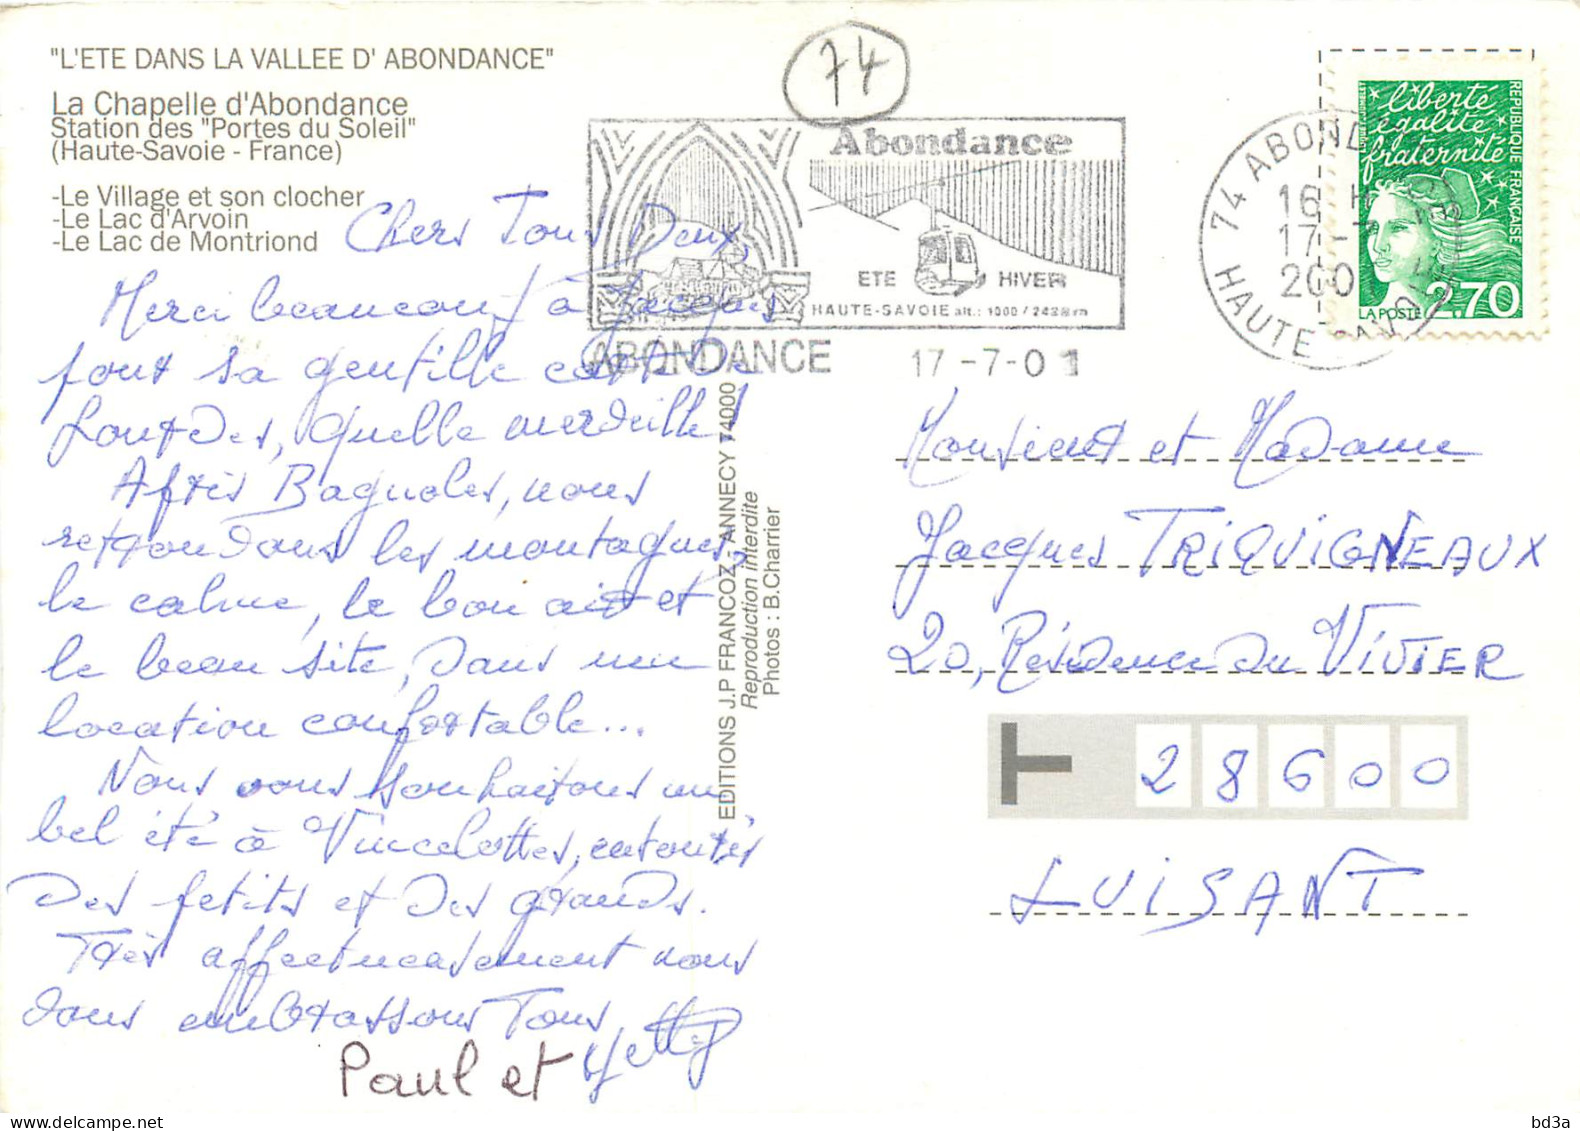 "L'ETE DANS LA VALLEE D' ABONDANCE"
La Chapelle d'Abondance
Station des "Portes du Soleil"
(Haute-Savoie - France)
-Le Village et son clocher
-Le Lac d'Arvoin
-Le Lac de Montriond
74
Abondance
ETE HIVER
HAUTE-SAVOIE alt.: 1000 / 2438 m
ABONDANCE 17-7-01
74 ABONDANCE
16 H
17-7
2001
HAUTE-SAVOIE
liberté
égalité
fraternité
REPUBLIQUE FRANÇAISE
LA POSTE 2,70
Chers Tous Deux,
Merci beaucoup à Jacques
pour sa gentille carte de
Lourdes, quelle merveille!
Après Bagnoles, nous
retrouvons les montagnes,
le calme, le bon air et
le beau site, dans une
location confortable...
Nous vous souhaitons un
bel été à Vincelottes, entourés
des petits et des grands.
Très affectueusement nous
vous embrassons Tous,
Paul et Yetty
EDITIONS J.P FRANCOZ ANNECY 74000
Reproduction interdite
Photos : B.Charrier
Monsieur et Madame
Jacques TRIQUIGNEAUX
20, Résidence du VIVIER
28600
LUISANT
bd3a